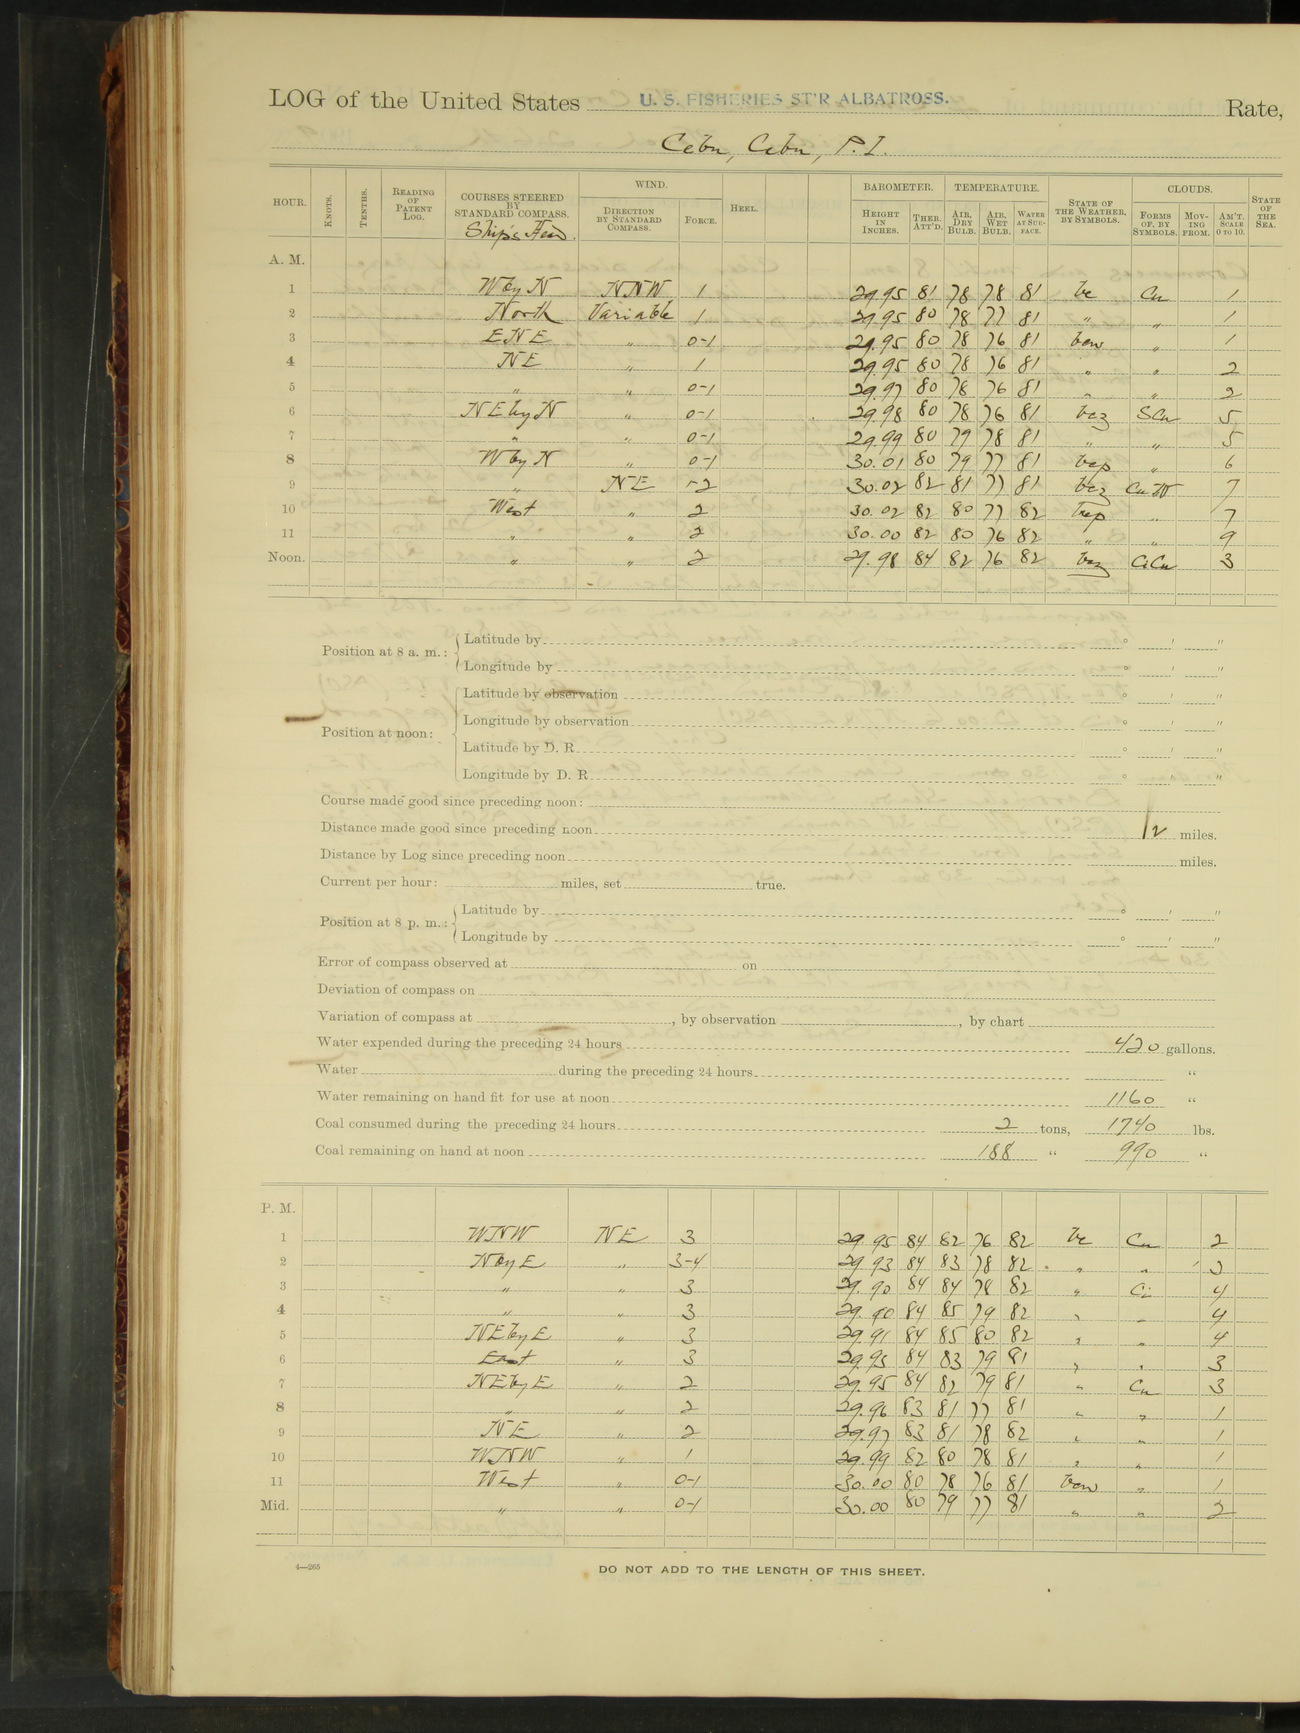 LOG of the United States U. S. FISHERIES ST'R ALBATROSS. Rate,
Cebu, Cebu, P. I.
HOUR. KNOTS. TENTHS. READING OF PATENT LOG. COURSES STEERED BY STANDARD COMPASS. Ship's Head. WIND. DIRECTION BY STANDARD COMPASS. FORCE. HEEL. BAROMETER. HEIGHT IN INCHES. THER. ATT'D. TEMPERATURE. AIR, DRY BULB. AIR, WET BULB. WATER AT SUR- FACE. STATE OF THE WEATHER, BY SYMBOLS. CLOUDS. FORMS OF, BY SYMBOLS. MOV- ING FROM. AM'T. SCALE 0 TO 10. STATE OF THE SEA.
A. M.
1 W by N NNW 1 29.95 81 78 78 81 bc Cu 1
2 North Variable 1 29.95 80 78 77 81 " " 1
3 ENE " 0-1 29.95 80 78 76 81 bcw " 1
4 NE " 1 29.95 80 78 76 81 " " 2
5 " " 0-1 29.97 80 78 76 81 " " 2
6 NE by N " 0-1 29.98 80 78 76 81 bcz SCu 5
7 " " 0-1 29.99 80 79 78 81 " " 5
8 W by N " 0-1 30.01 80 79 77 81 bcp " 6
9 " NE -2 30.02 82 81 77 81 bcz 7
10 West " 2 30.02 82 80 77 82 bcp " 7
11 " " 2 30.00 82 80 76 82 " " 9
Noon. " " 2 29.98 84 82 76 82 bcz CiCu 3
Position at 8 a. m.: Latitude by ° ' "
Longitude by ° ' "
Position at noon: Latitude by observation ° ' "
Longitude by observation ° ' "
Latitude by D. R. ° ' "
Longitude by D. R. ° ' "
Course made good since preceding noon:
Distance made good since preceding noon 12 miles.
Distance by Log since preceding noon miles.
Current per hour: miles, set true.
Position at 8 p. m.: Latitude by ° ' "
Longitude by ° ' "
Error of compass observed at on
Deviation of compass on
Variation of compass at , by observation , by chart
Water expended during the preceding 24 hours 420 gallons.
Water during the preceding 24 hours "
Water remaining on hand fit for use at noon 1160 "
Coal consumed during the preceding 24 hours 2 tons, 1740 lbs.
Coal remaining on hand at noon 188 " 990 "
P. M.
1 WNW NE 3 29.95 84 82 76 82 bc Cu 2
2 N by E " 3-4 29.93 84 83 78 82 " "
3 " " 3 29.90 84 84 78 82 " Ci 4
4 " " 3 29.90 84 85 79 82 " " 4
5 NE by E " 3 29.91 84 85 80 82 " " 4
6 East " 3 29.93 84 83 79 81 " " 3
7 NE by E " 2 29.95 84 82 79 81 " Cu 3
8 " " 2 29.96 83 81 77 81 " " 1
9 NE " 2 29.97 83 81 78 82 " " 1
10 WNW " 1 29.99 82 80 78 81 " " 1
11 West " 0-1 30.00 80 78 76 81 bcw " 1
Mid. " " 0-1 30.00 80 79 77 81 " " 2
4—265
DO NOT ADD TO THE LENGTH OF THIS SHEET.